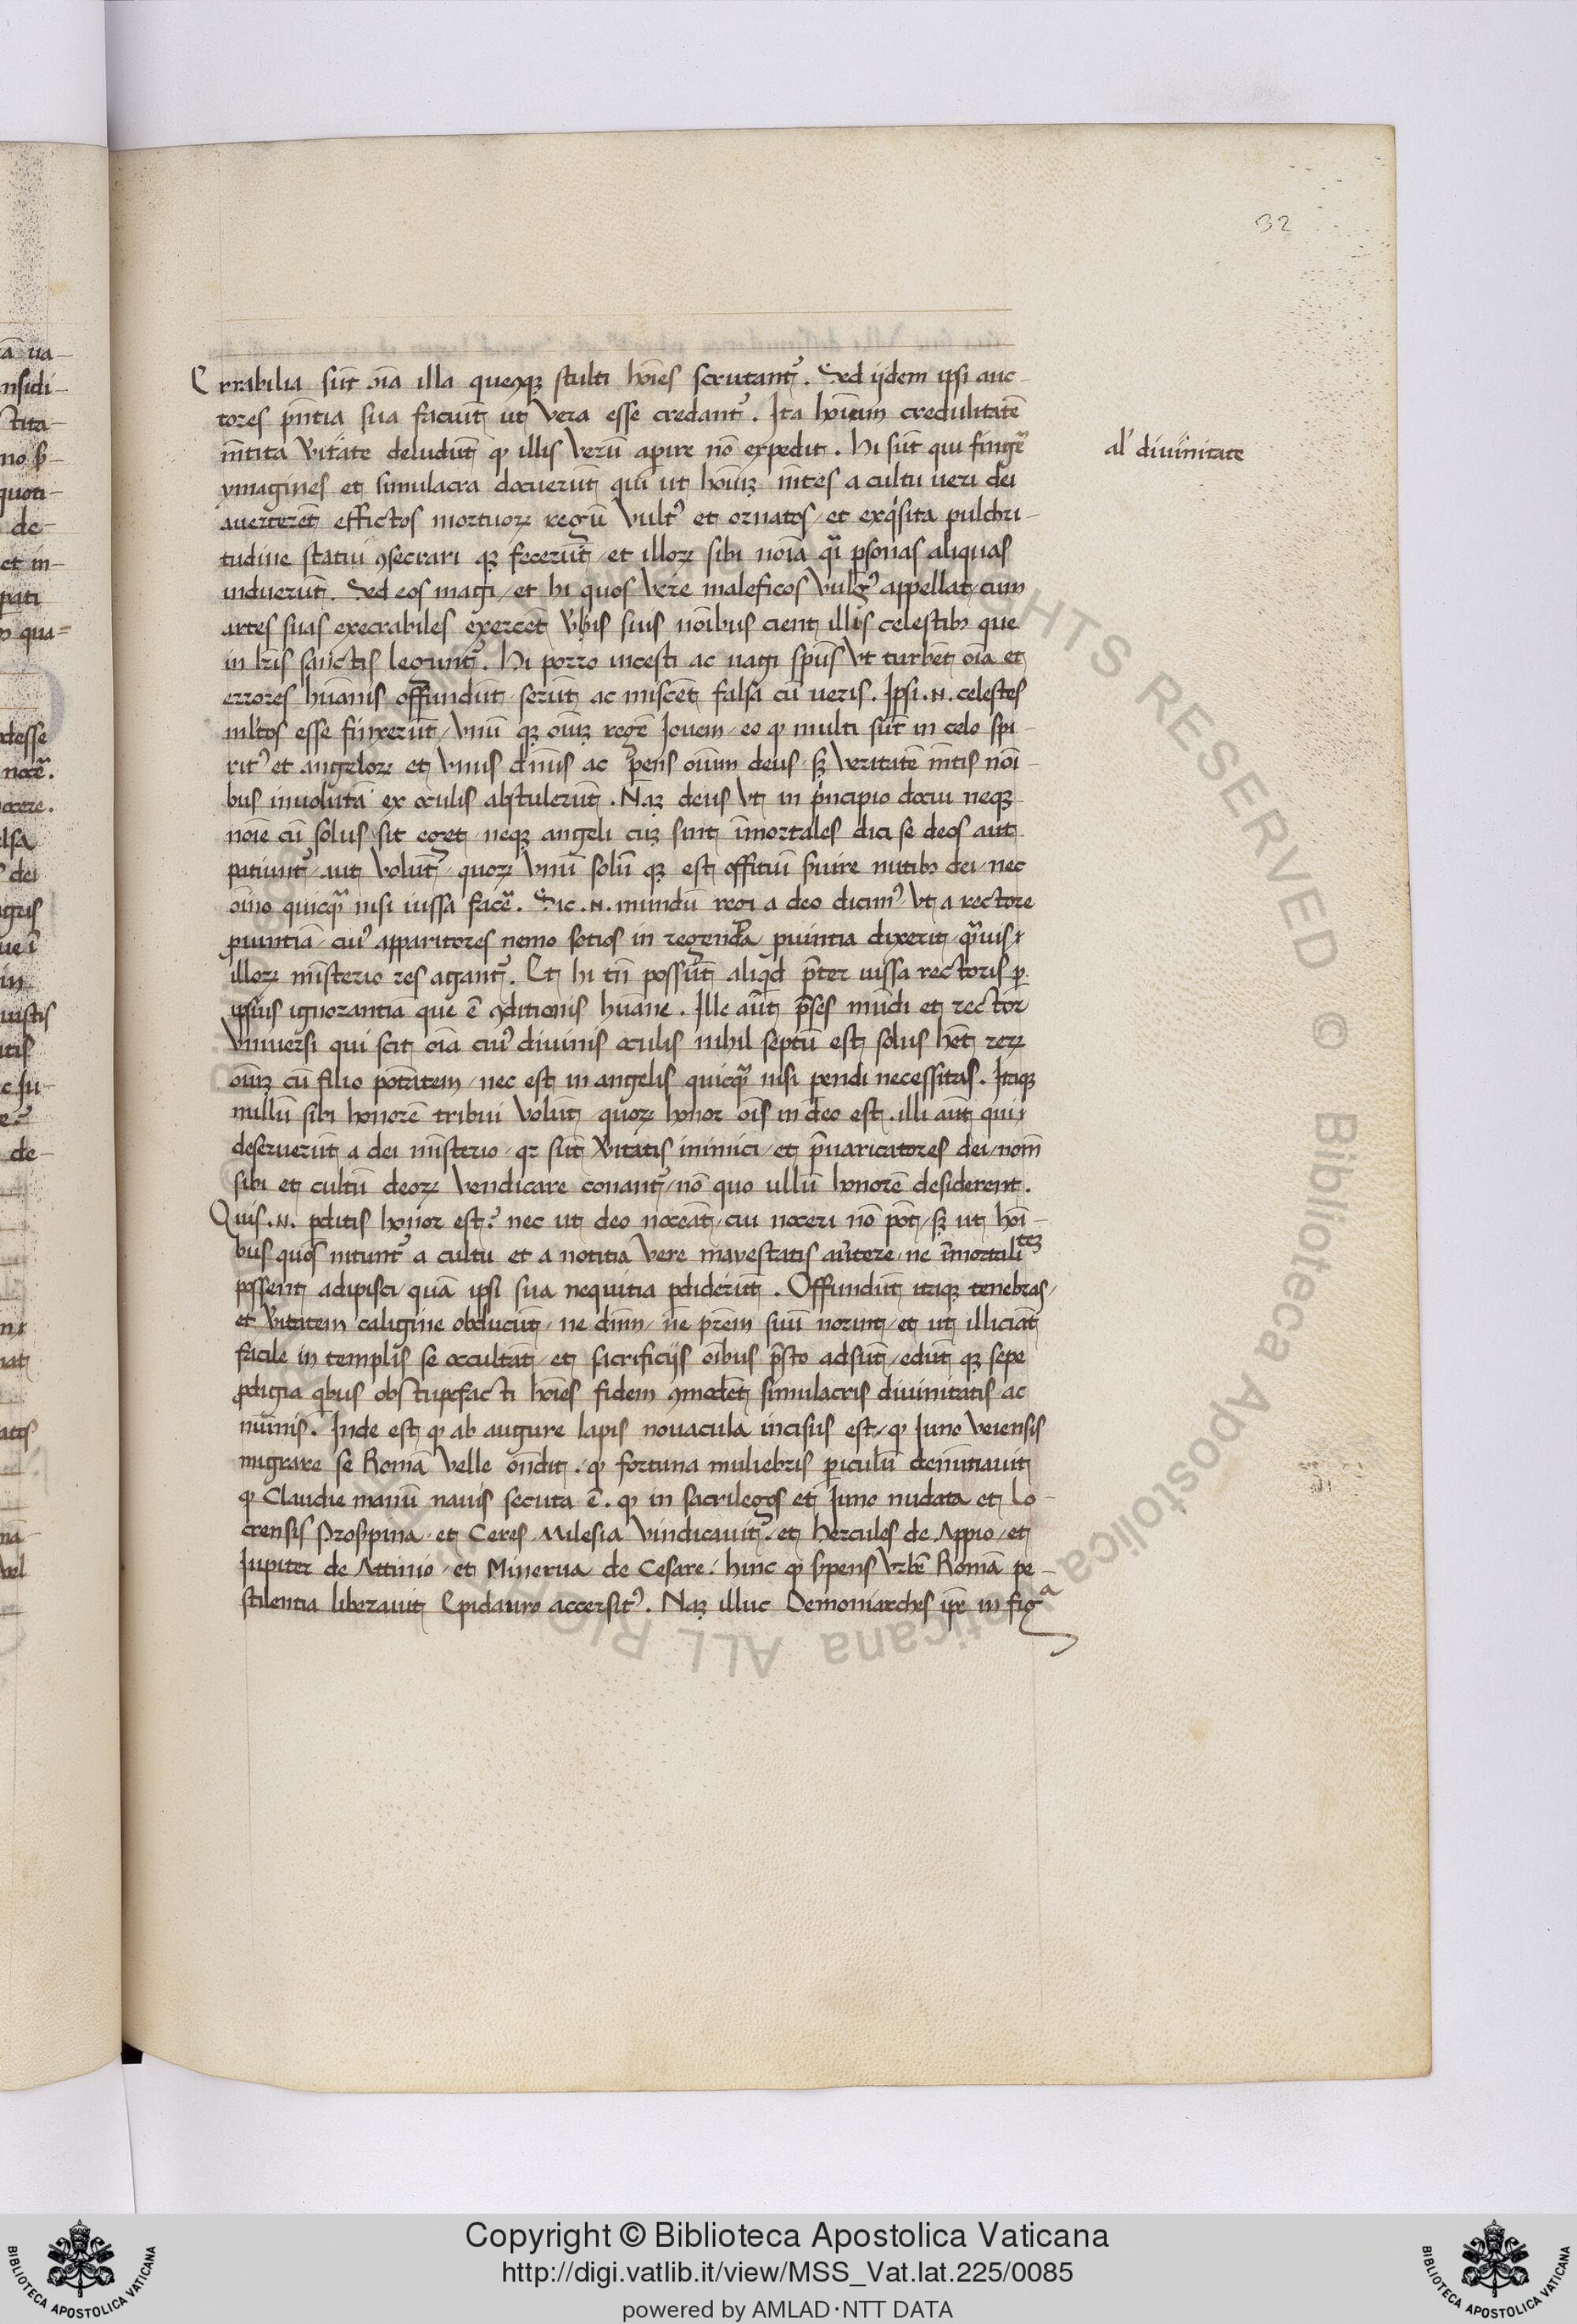 32
Errabilia sūt oīa illa quęqꝫ stulti hoīes scrutant᷑. Sed ijdem ipsi auc-
tores pn̄tia sua faciūt ut vera esse credant᷑. Ita hoīum credulitatē
mētita v̓itate deludūt ꝙ illis verū aꝑire nō expedit. Hi sūt qui finge᷑
al' diviinitate
ymagines et simulacra docuerūt qui ut hoīuꝫ mētes a cultu ueri dei
auerterēt effictos mortuoꝝ regū vultꝰ et ornatos / et exqͥsita pulchri-
tudine statui ꝯsecrari qꝫ fecerūt / et illoꝝ sibi noīa qͣi ꝑsonas aliquas
induerūt. Sed eos magi / et hi quos vere maleficos vulgꝰ appellat / cum
artes suas execrabiles exercēt v̓bis suis noībus cient illis celestibꝫ que
in lr̄is sanctis legunt᷑. Hi porro incesti ac uagi spūs vt turbēt oīa et
errores hūanis offundūt serūt ac miscēt falsa cū ueris. Ipsi .n. celestes
ml̓tos esse finxerūt / vnū qꝫ oīuꝫ regē Iouem / eo ꝙ multi sūt in celo spi-
ritꝰ et angeloꝝ et vnus dn̄us ac ꝑens oīum deus / sꝫ veritatē mētis noī-
bus inuolutā ex oculis abstulerūt. Naꝫ deus vt in pͥncipio docui neqꝫ
noīe cū solus sit eget / neqꝫ angeli cuꝫ sint īmortales dici se deos aut
patiunt᷑ / aut volūt / quoꝝ vnū solū qꝫ est offitiū s̓uire nutibꝫ dei / nec
oīno quicqͣ nisi iussa face᷑. Sic .n. mundū regi a deo dicimꝰ / vt a rectore
ꝓuintiā / cuiꝰ apparitores nemo sotios in regenda ꝓuintia dixerit / qͣuis
illoꝝ mīsterio res agant᷑. Et hi tn̄ possūt aliqͥd p̄ter iussa rectoris ꝑ
ipsius ignorantiā que ē ꝯditionis hūane. Ille aūt p̄ses mūdi et rector
vniuersi qui scit oīa cuiꝰ diuinis oculis nihil septū est / solus hēt reꝝ
oīuꝫ cū filio potātem / nec est in angelis quicqͣ nisi ꝑendi necessitas. Itaqꝫ
nullū sibi honorē tribui volūt / quoꝝ honor oīs in deo est. illi aūt qui
deseruerūt a dei mīsterio / qꝛ sūt v̓itatis inimici / et p̄uaricatores dei / nom̄
sibi et cultū deoꝝ vendicare conant᷑ / nō quo ullū honorē desiderent.
Quis .n. ꝑditis honor est? nec ut deo noceāt / cui noceri nō pōt / sꝫ ut hoī-
bus quos nitunt᷑ a cultu et a notitia vere maiestatis au̓tere / ne īmortalitēꝫ
possent adipisci / quā ipsi sua nequitia ꝑdiderūt. Offundūt itaqꝫ tenebras /
et v̓itatem caligine obducūt / ne dīnm / ne pr̄em suū norint / et ut illiciāt
facile in templis se occultāt / et sacrificijs oībus p̄sto adsūt / edūt qꝫ sepe
ꝓdigia qͥbus obstupefacti hoīes fidem ꝯmodēt simulacris diuinitatis ac
nūmis. Inde est ꝙ ab augure lapis nouacula incisus est / ꝙ Iuno veiensis
migrare se Romā velle ōndit. ꝙ fortuna muliebris ꝑiculū denūtiauit
ꝙ Claudie manū nauis secuta ē. ꝙ in sacrilegos et Iuno nudata et Lo-
crensis Pros̓pina / et Ceres Milesia vindicauit / et hercules de Appio / et
Iupiter de Attinio / et Minerua de Cesare. hinc ꝙ s̓pens vrbē Romā pe-
stilentia liberauit Epidauro accersitꝰ. Naꝫ illuc Demoniarches ip̄e in figͣ
Copyright © Biblioteca Apostolica Vaticana
http://digi.vatlib.it/view/MSS_Vat.lat.225/0085
powered by AMLAD·NTT DATA